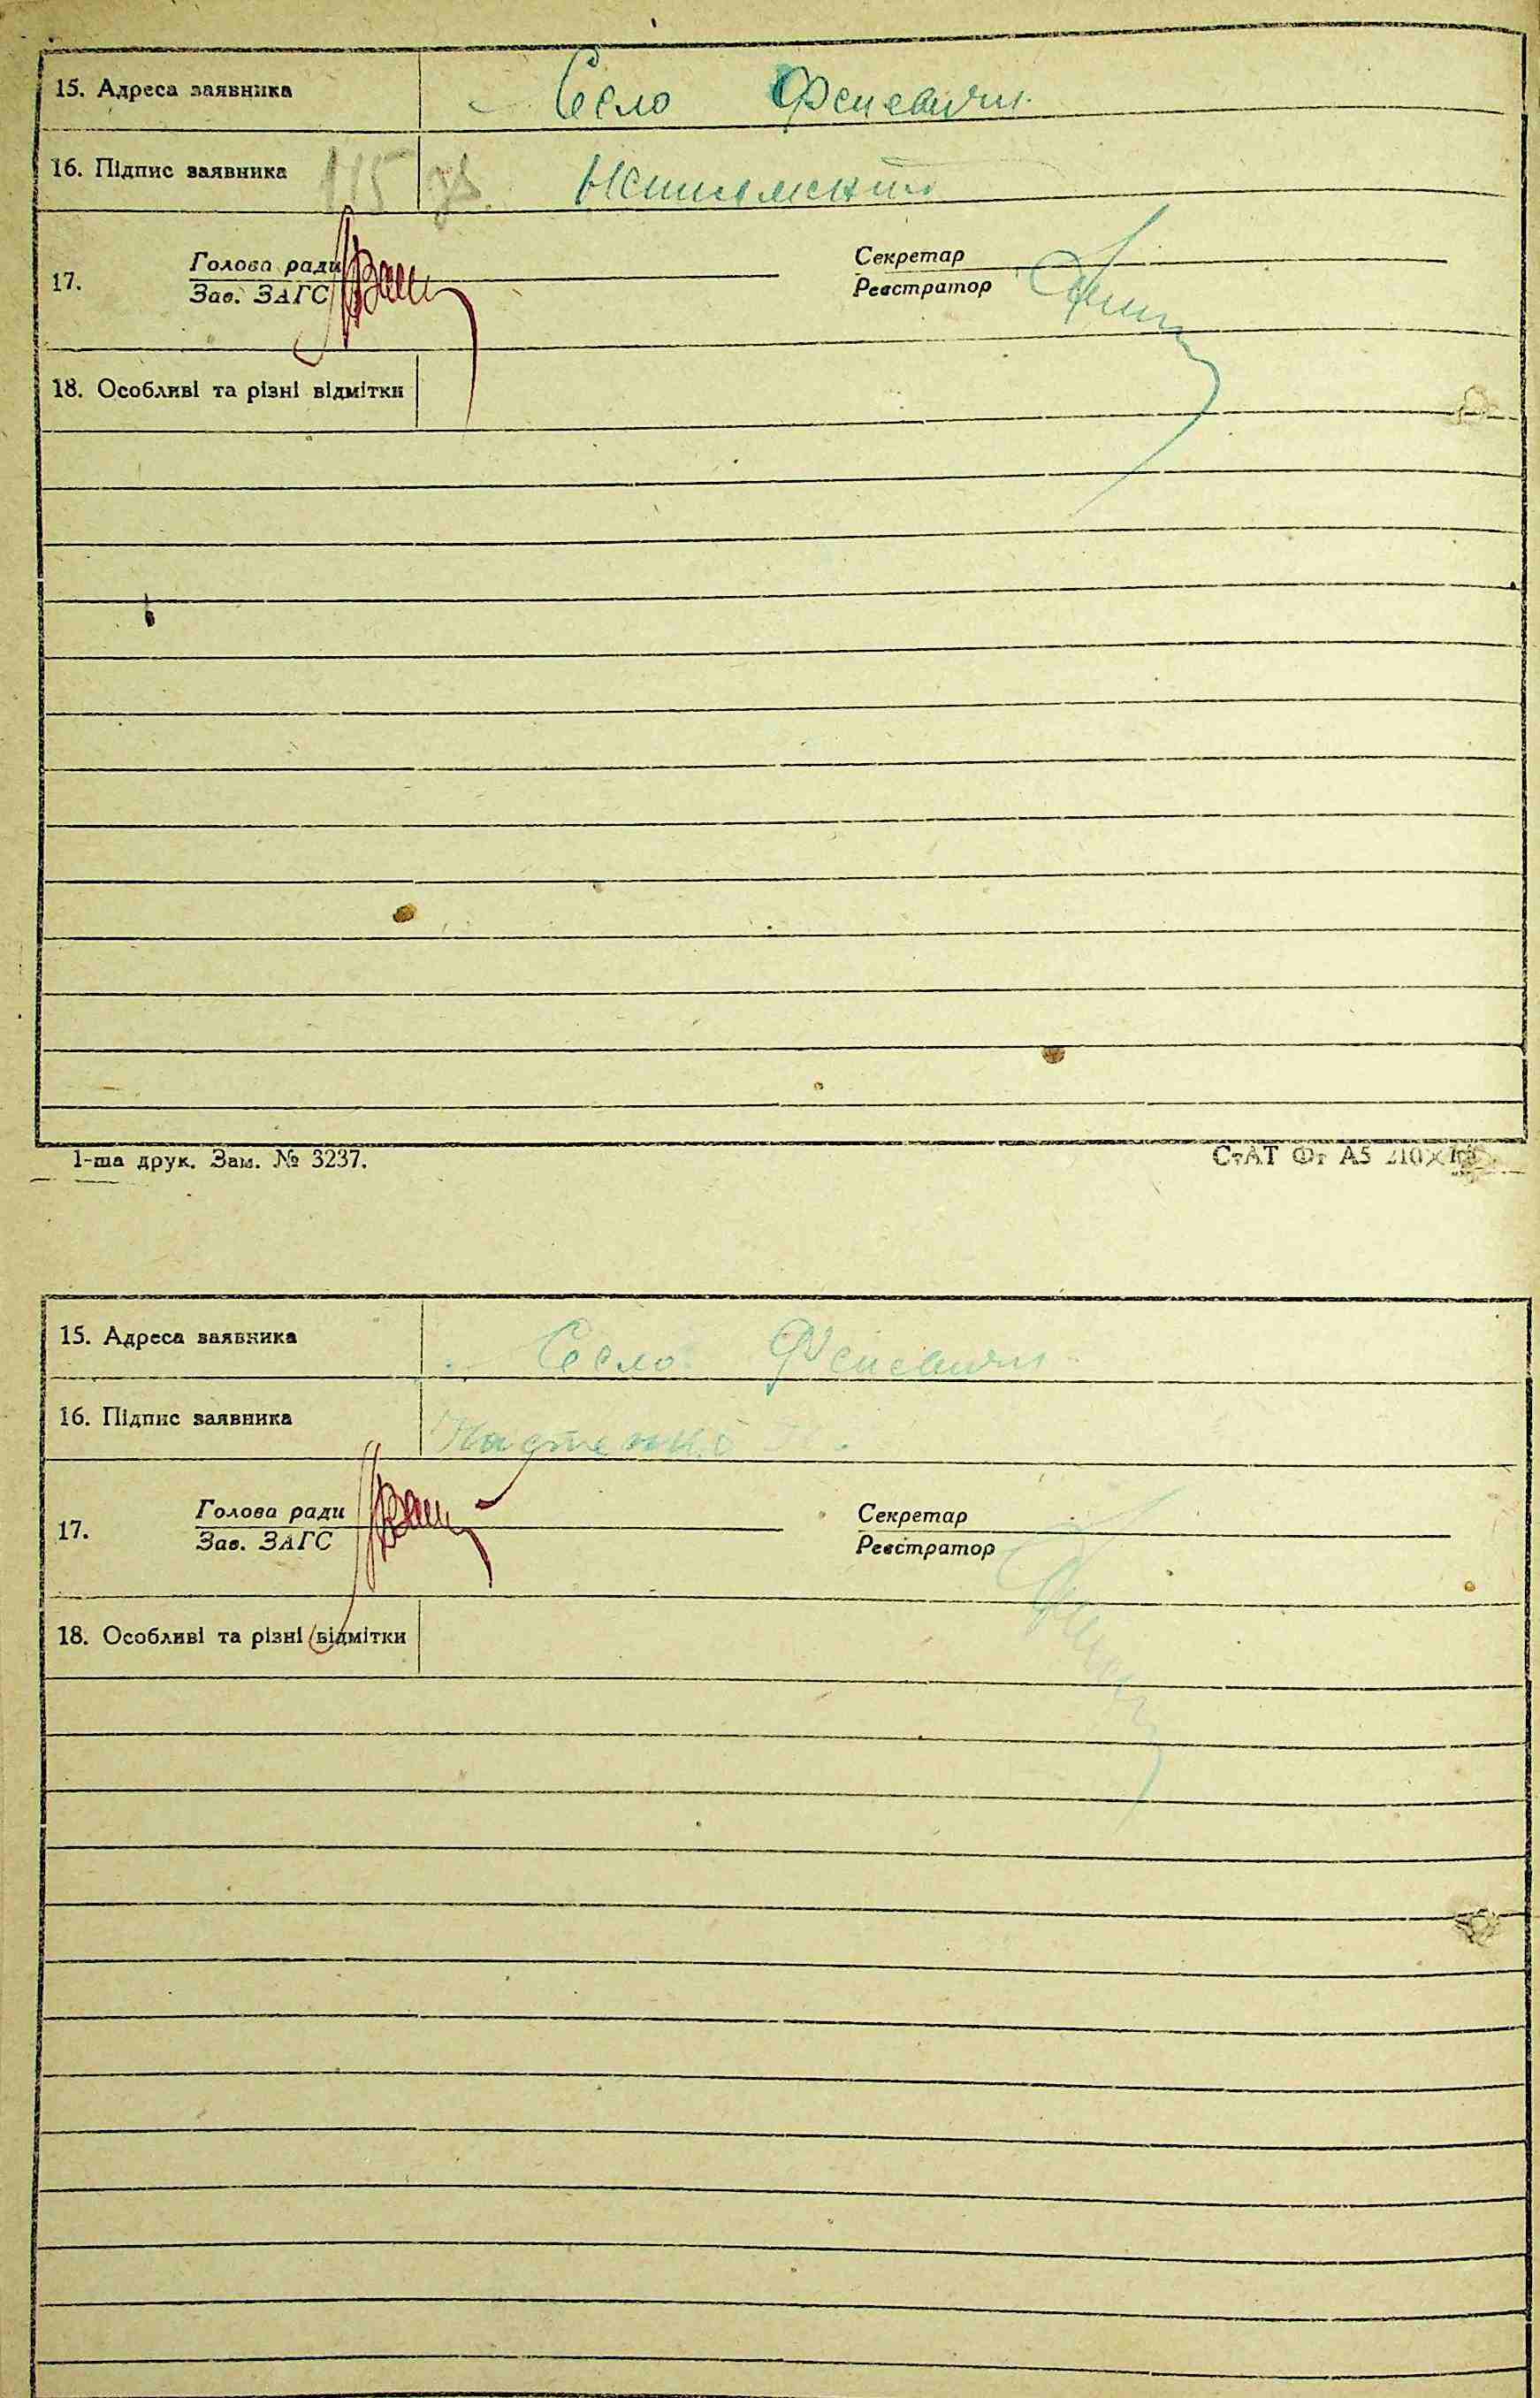 15. Адреса заявника Село Феневичи
16. Підпис заявника 115
17. Голова ради Секретар
Зав. ЗАГС Реєстратор
18. Особливі та різні відмітки
1-ша друк. Зам. № 3237. СтАТ Фт А5 210×
15. Адреса заявника Село Феневичи
16. Підпис заявника
17. Голова ради Секретар
Зав. ЗАГС Реєстратор
18. Особливі та різні відмітки